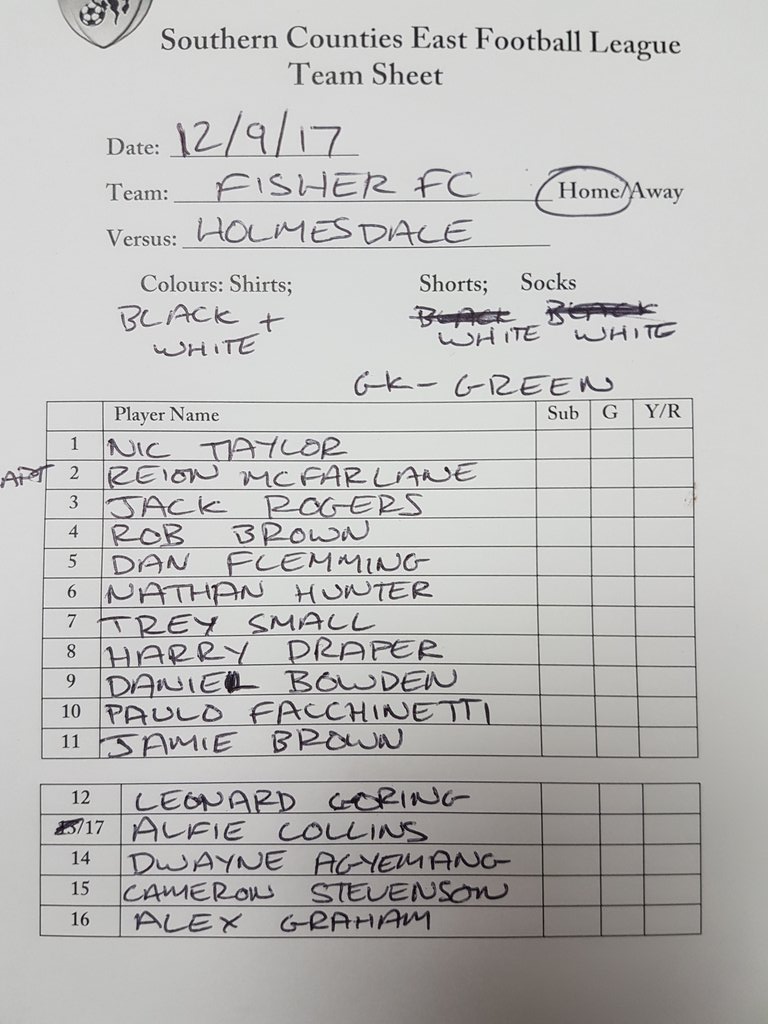 Southern Counties East Football League
Team Sheet
Date: 12/9/17
Team: FISHER FC Home/Away
Versus: HOLMESDALE
Colours: Shirts; Shorts; Socks
BLACK + BLACK BLACK
WHITE WHITE WHITE
GK - GREEN
Player Name Sub G Y/R
1 NIC TAYLOR
2 REION MCFARLANE
3 JACK ROGERS
4 ROB BROWN
5 DAN FLEMMING
6 NATHAN HUNTER
7 TREY SMALL
8 HARRY DRAPER
9 DANIEL BOWDEN
10 PAULO FACCHINETTI
11 JAMIE BROWN
12 LEONARD GORING
/17 ALFIE COLLINS
14 DWAYNE AGYEMANG
15 CAMERON STEVENSON
16 ALEX GRAHAM